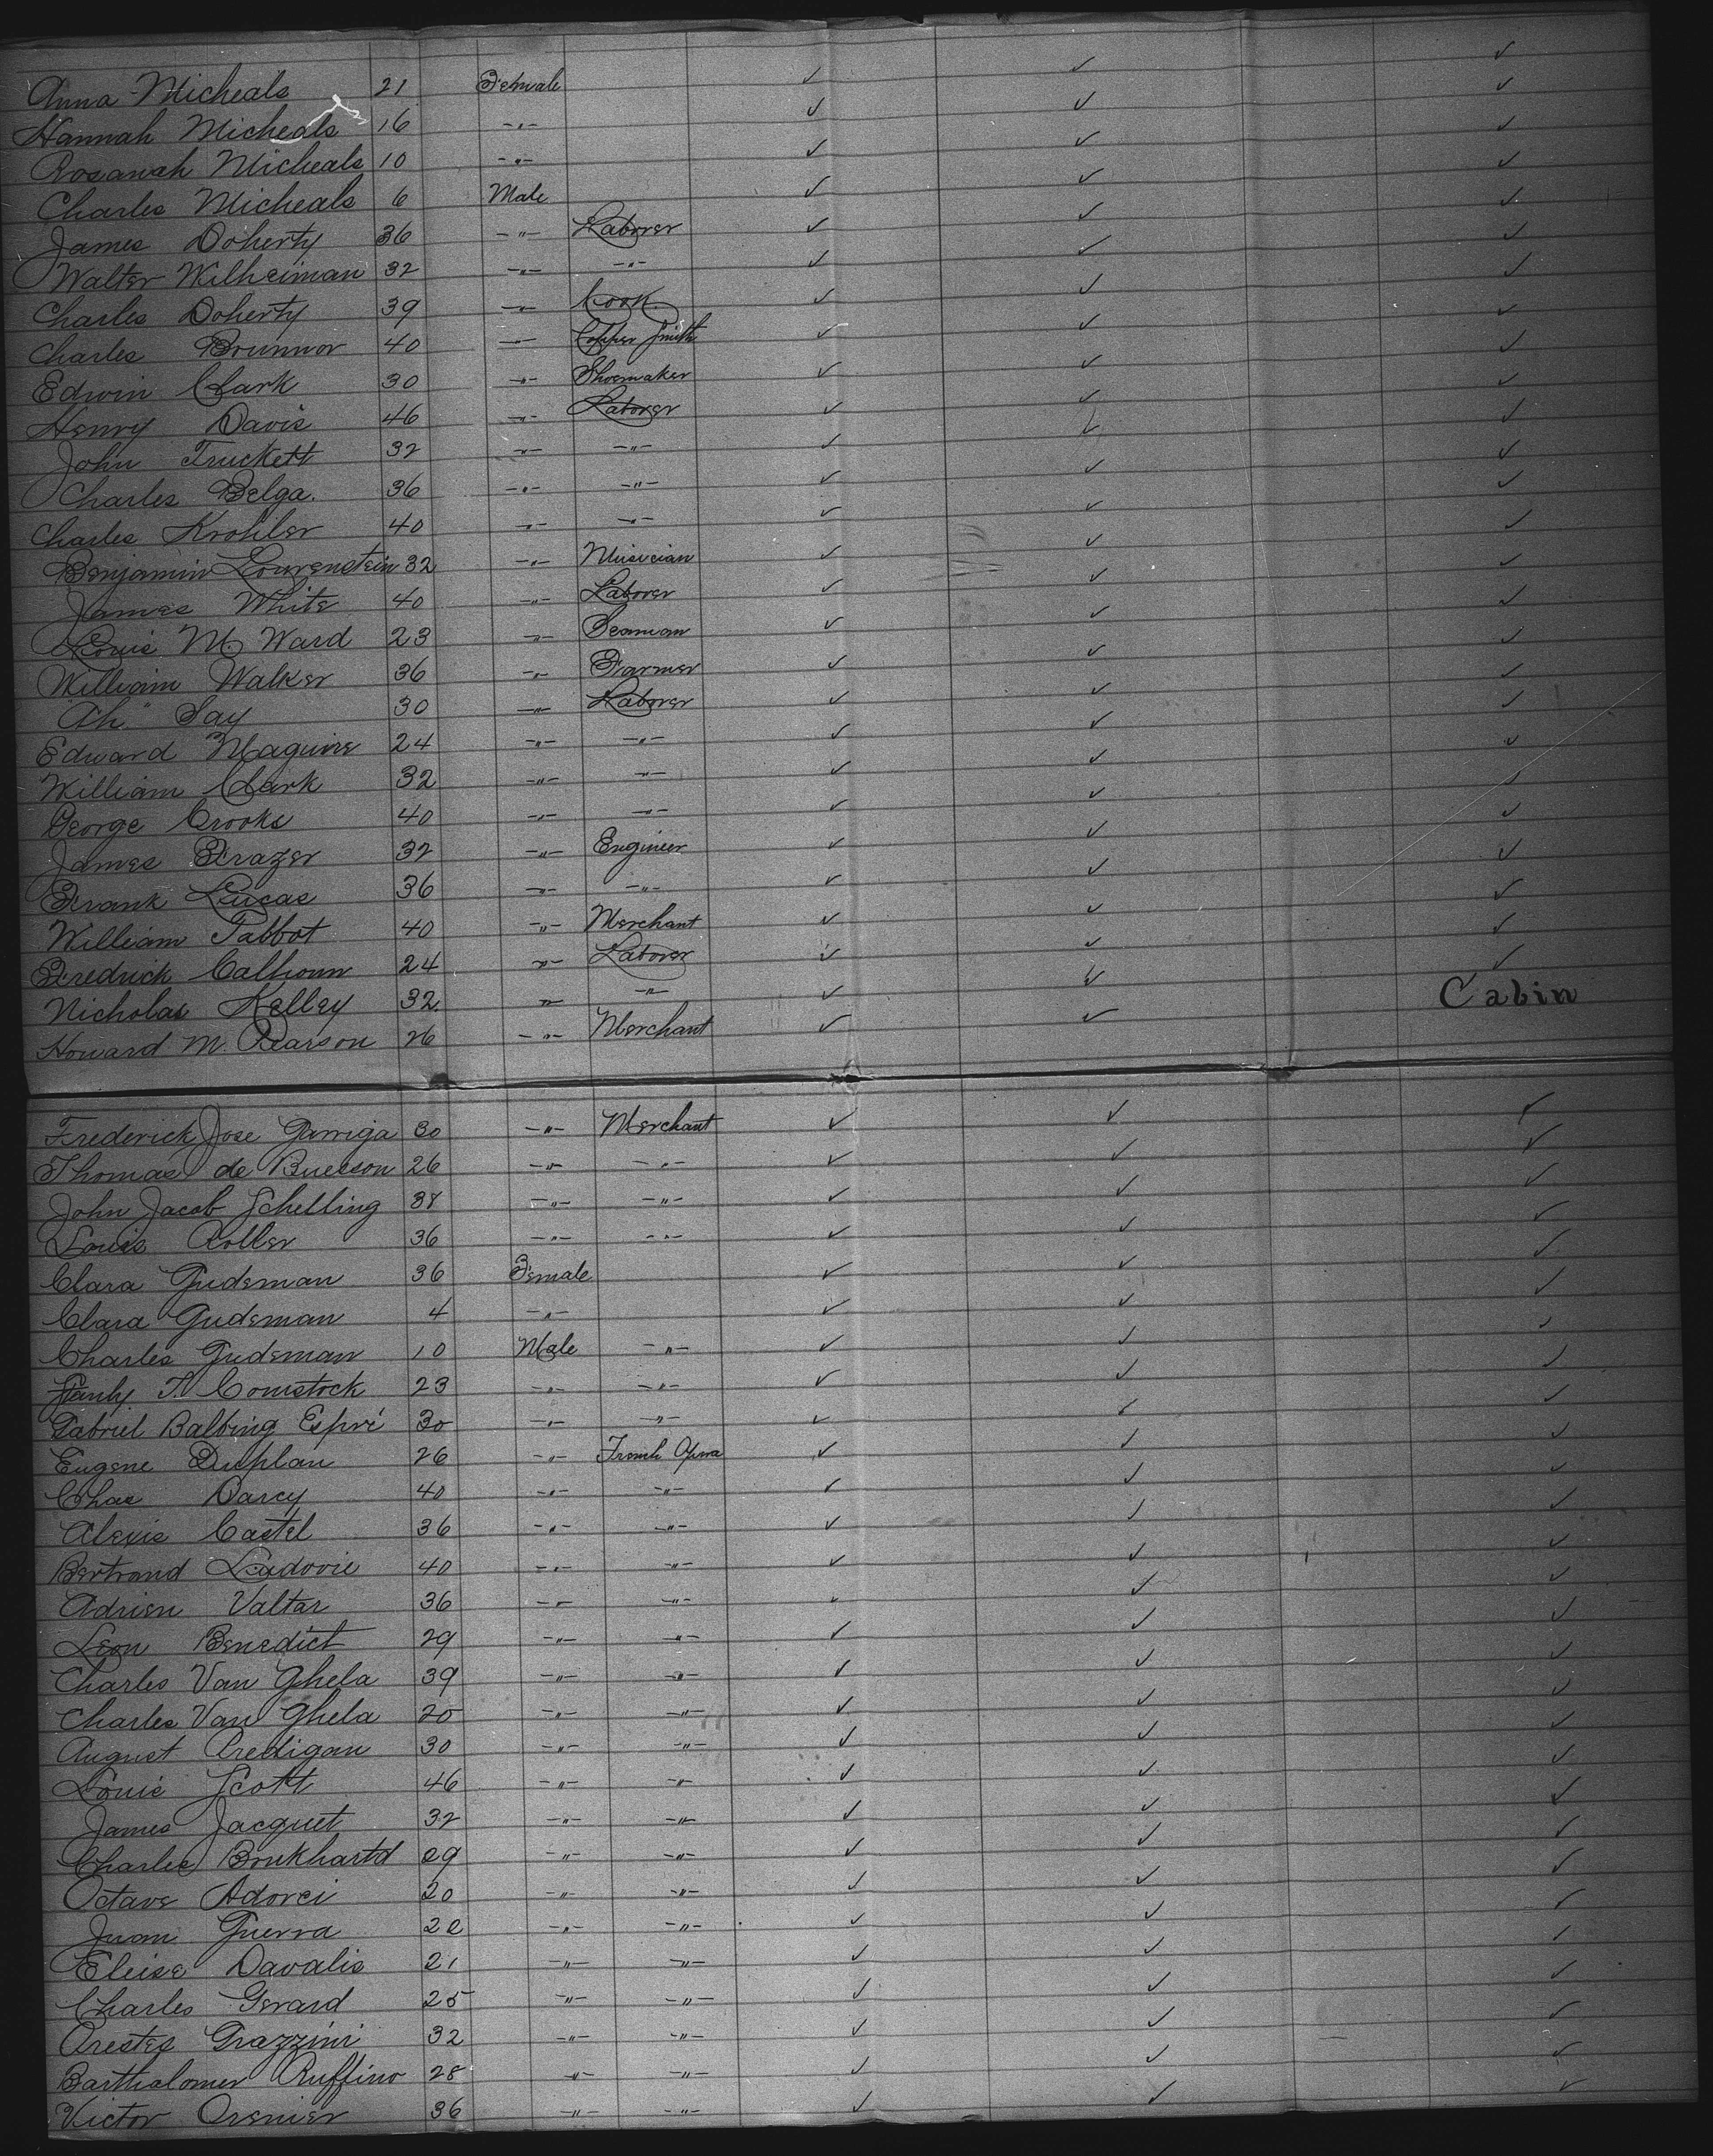 Anna Micheals 21 Female ✓ ✓ ✓
Hannah Micheals 16 -"- ✓ ✓ ✓
Rosanah Micheals 10 -"- ✓ ✓ ✓
Charles Micheals 6 Male ✓ ✓ ✓
James Doherty 36 -"- Laborer ✓ ✓ ✓
Walter Wilheiman 32 -"- -"- ✓ ✓ ✓
Charles Doherty 39 -"- Cook ✓ ✓ ✓
Charles Brunnor 40 -"- Copper Smith ✓ ✓ ✓
Edwin Clark 30 -"- Shoemaker ✓ ✓ ✓
Henry Davis 46 -"- Laborer ✓ ✓ ✓
John Truckett 32 -"- -"- ✓ ✓ ✓
Charles Belga. 36 -"- -"- ✓ ✓ ✓
Charles Krohler 40 -"- -"- ✓ ✓ ✓
Benjamin Lowenstein 32 -"- Musician ✓ ✓ ✓
James White 40 -"- Laborer ✓ ✓ ✓
Louis M. Ward 23 -"- Seaman ✓ ✓ ✓
William Walker 36 -"- Farmer ✓ ✓ ✓
Ah " Say 30 -"- Laborer ✓ ✓ ✓
Edward Maguire 24 -"- -"- ✓ ✓ ✓
William Clark 32 -"- -"- ✓ ✓ ✓
George Crooks 40 -"- -"- ✓ ✓ ✓
James Frazer 32 -"- Engineer ✓ ✓ ✓
Frank Lucas 36 -"- -"- ✓ ✓ ✓
William Tabbot 40 -"- Merchant ✓ ✓ ✓
Fredrick Calhoun 24 -"- Laborer ✓ ✓ ✓
Nicholas Kelley 32. -"- -"- ✓ ✓ ✓
Howard M. Pearson 26 -"- Merchant ✓ ✓ Cabin
Frederick Jose Garriga 30 -"- Merchant ✓ ✓ ✓
Thomas de Buesson 26 -"- -"- ✓ ✓ ✓
John Jacob Schelling 38 -"- -"- ✓ ✓ ✓
Louis Roller 36 -"- -"- ✓ ✓ ✓
Clara Gudeman 36 Female ✓ ✓ ✓
Clara Gudeman 4 -"- ✓ ✓ ✓
Charles Gudeman 10 Male -"- ✓ ✓ ✓
T. Comstock 23 -"- -"- ✓ ✓ ✓
Gabriel Balbing Espri 30 -"- -"- ✓ ✓ ✓
Eugene Duplan 26 -"- French Opera ✓ ✓ ✓
Chas Darcy 40 -"- -"- ✓ ✓ ✓
Alexis Castel 36 -"- -"- ✓ ✓ ✓
Bertrand Ludovic 40 -"- -"- ✓ ✓ ✓
Adrien Valtar 36 -"- -"- ✓ ✓ ✓
Leon Benedict 29 -"- -"- ✓ ✓ ✓
Charles Van Ghela 39 -"- -"- ✓ ✓ ✓
Charles Van Ghela 20 -"- -"- ✓ ✓ ✓
August Predigan 30 -"- -"- ✓ ✓ ✓
Louis Scott 46 -"- -"- ✓ ✓ ✓
James Jacquet 32 -"- -"- ✓ ✓ ✓
Charles Bourkhartd 29 -"- -"- ✓ ✓ ✓
Octave Adorci 20 -"- -"- ✓ ✓ ✓
Juan Guerra 22 -"- -"- ✓ ✓ ✓
Eleise Davalis 21 -"- -"- ✓ ✓ ✓
Charles Gerard 25 -"- -"- ✓ ✓ ✓
Orestes Grazzini 32 -"- -"- ✓ ✓ ✓
Barthalomer Ruffino 28 -"- -"- ✓ ✓ ✓
Victor Grenier 36 -"- -"- ✓ ✓ ✓